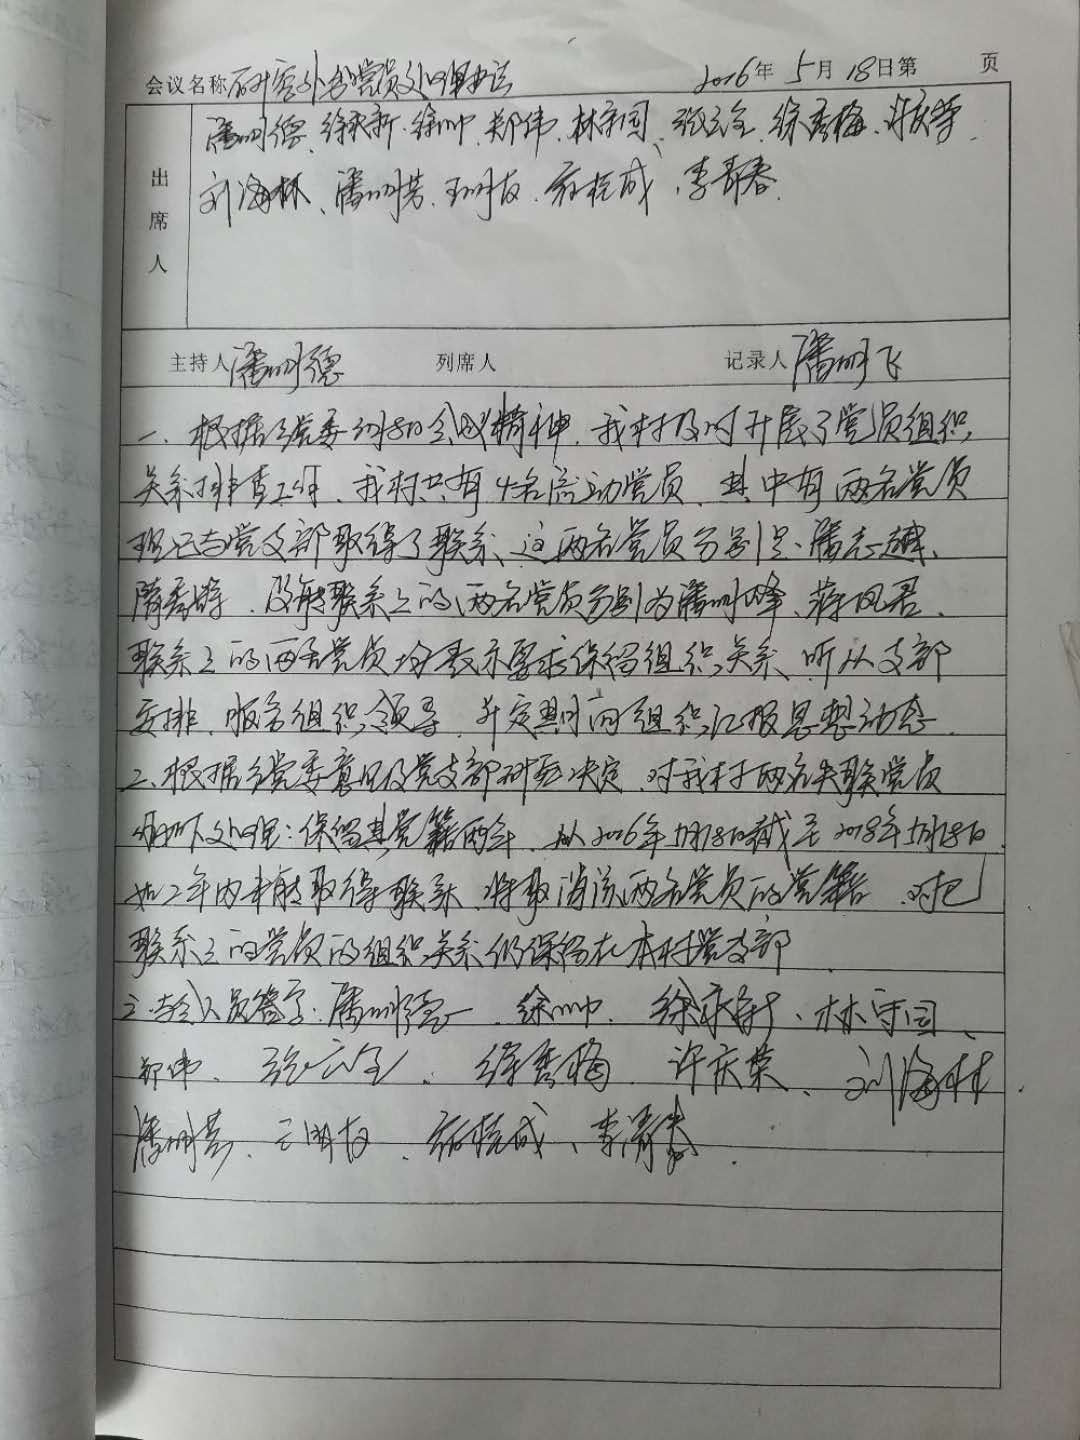 会议名称 研究外出党员处理办法 2016年5月18日第 页
出席人
潘明德、徐永新、徐帅、郑伟、林守国、张立全、徐秀梅、许庆荣、
刘海林、潘明芳、王明友、成、李青春.
主持人 潘明德 列席人 记录人 潘明飞
一、根据乡党委5月8日会议精神,我村及时开展了党员组织
关系排查工作,我村共有4名流动党员,其中有两名党员
现已与党支部取得了联系,这两名党员分别是:潘志越、
隋秀 没能联系上的两名党员分别为潘明峰、蒋凤君,
联系上的两名党员均表示要求保留组织关系,听从支部
安排,服务组织领导,并定期向组织汇报思想动态.
二、根据乡党委意见及党支部研究决定,对我村两名失联党员
做如下处理:保留其党籍两年,从2016年5月18日截至2018年5月18日
如二年内未能取得联系,将取消该两名党员的党籍,对已
联系上的党员的组织关系仍保留在本村党支部.
三、与会人员签字:潘明德、徐帅、徐永新、林守国、
郑伟、张立全、徐秀梅、许庆荣、刘海林
潘明芳、王明友、成、李清春.